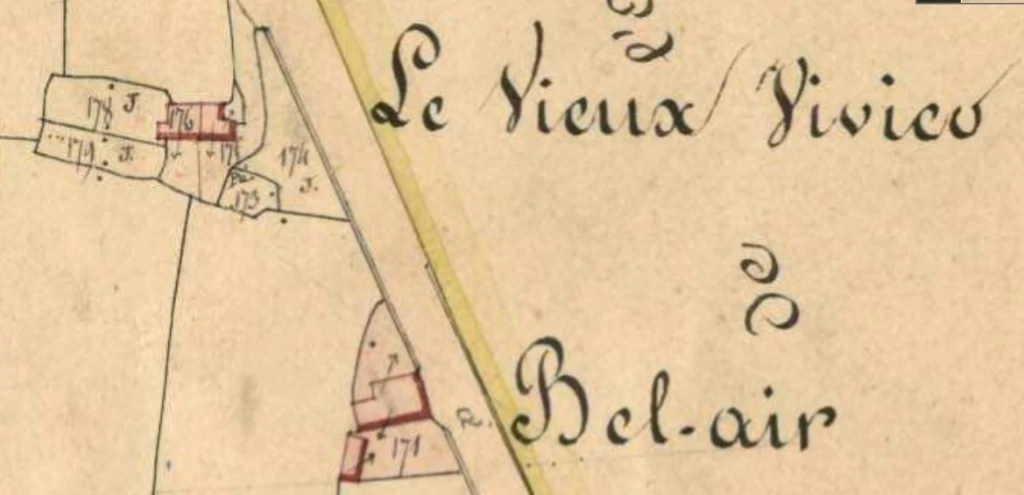 Le Vieux Vivico
178 J.
176
179 J.
175
174 J.
Pa. 173
Bel-air
R.
171